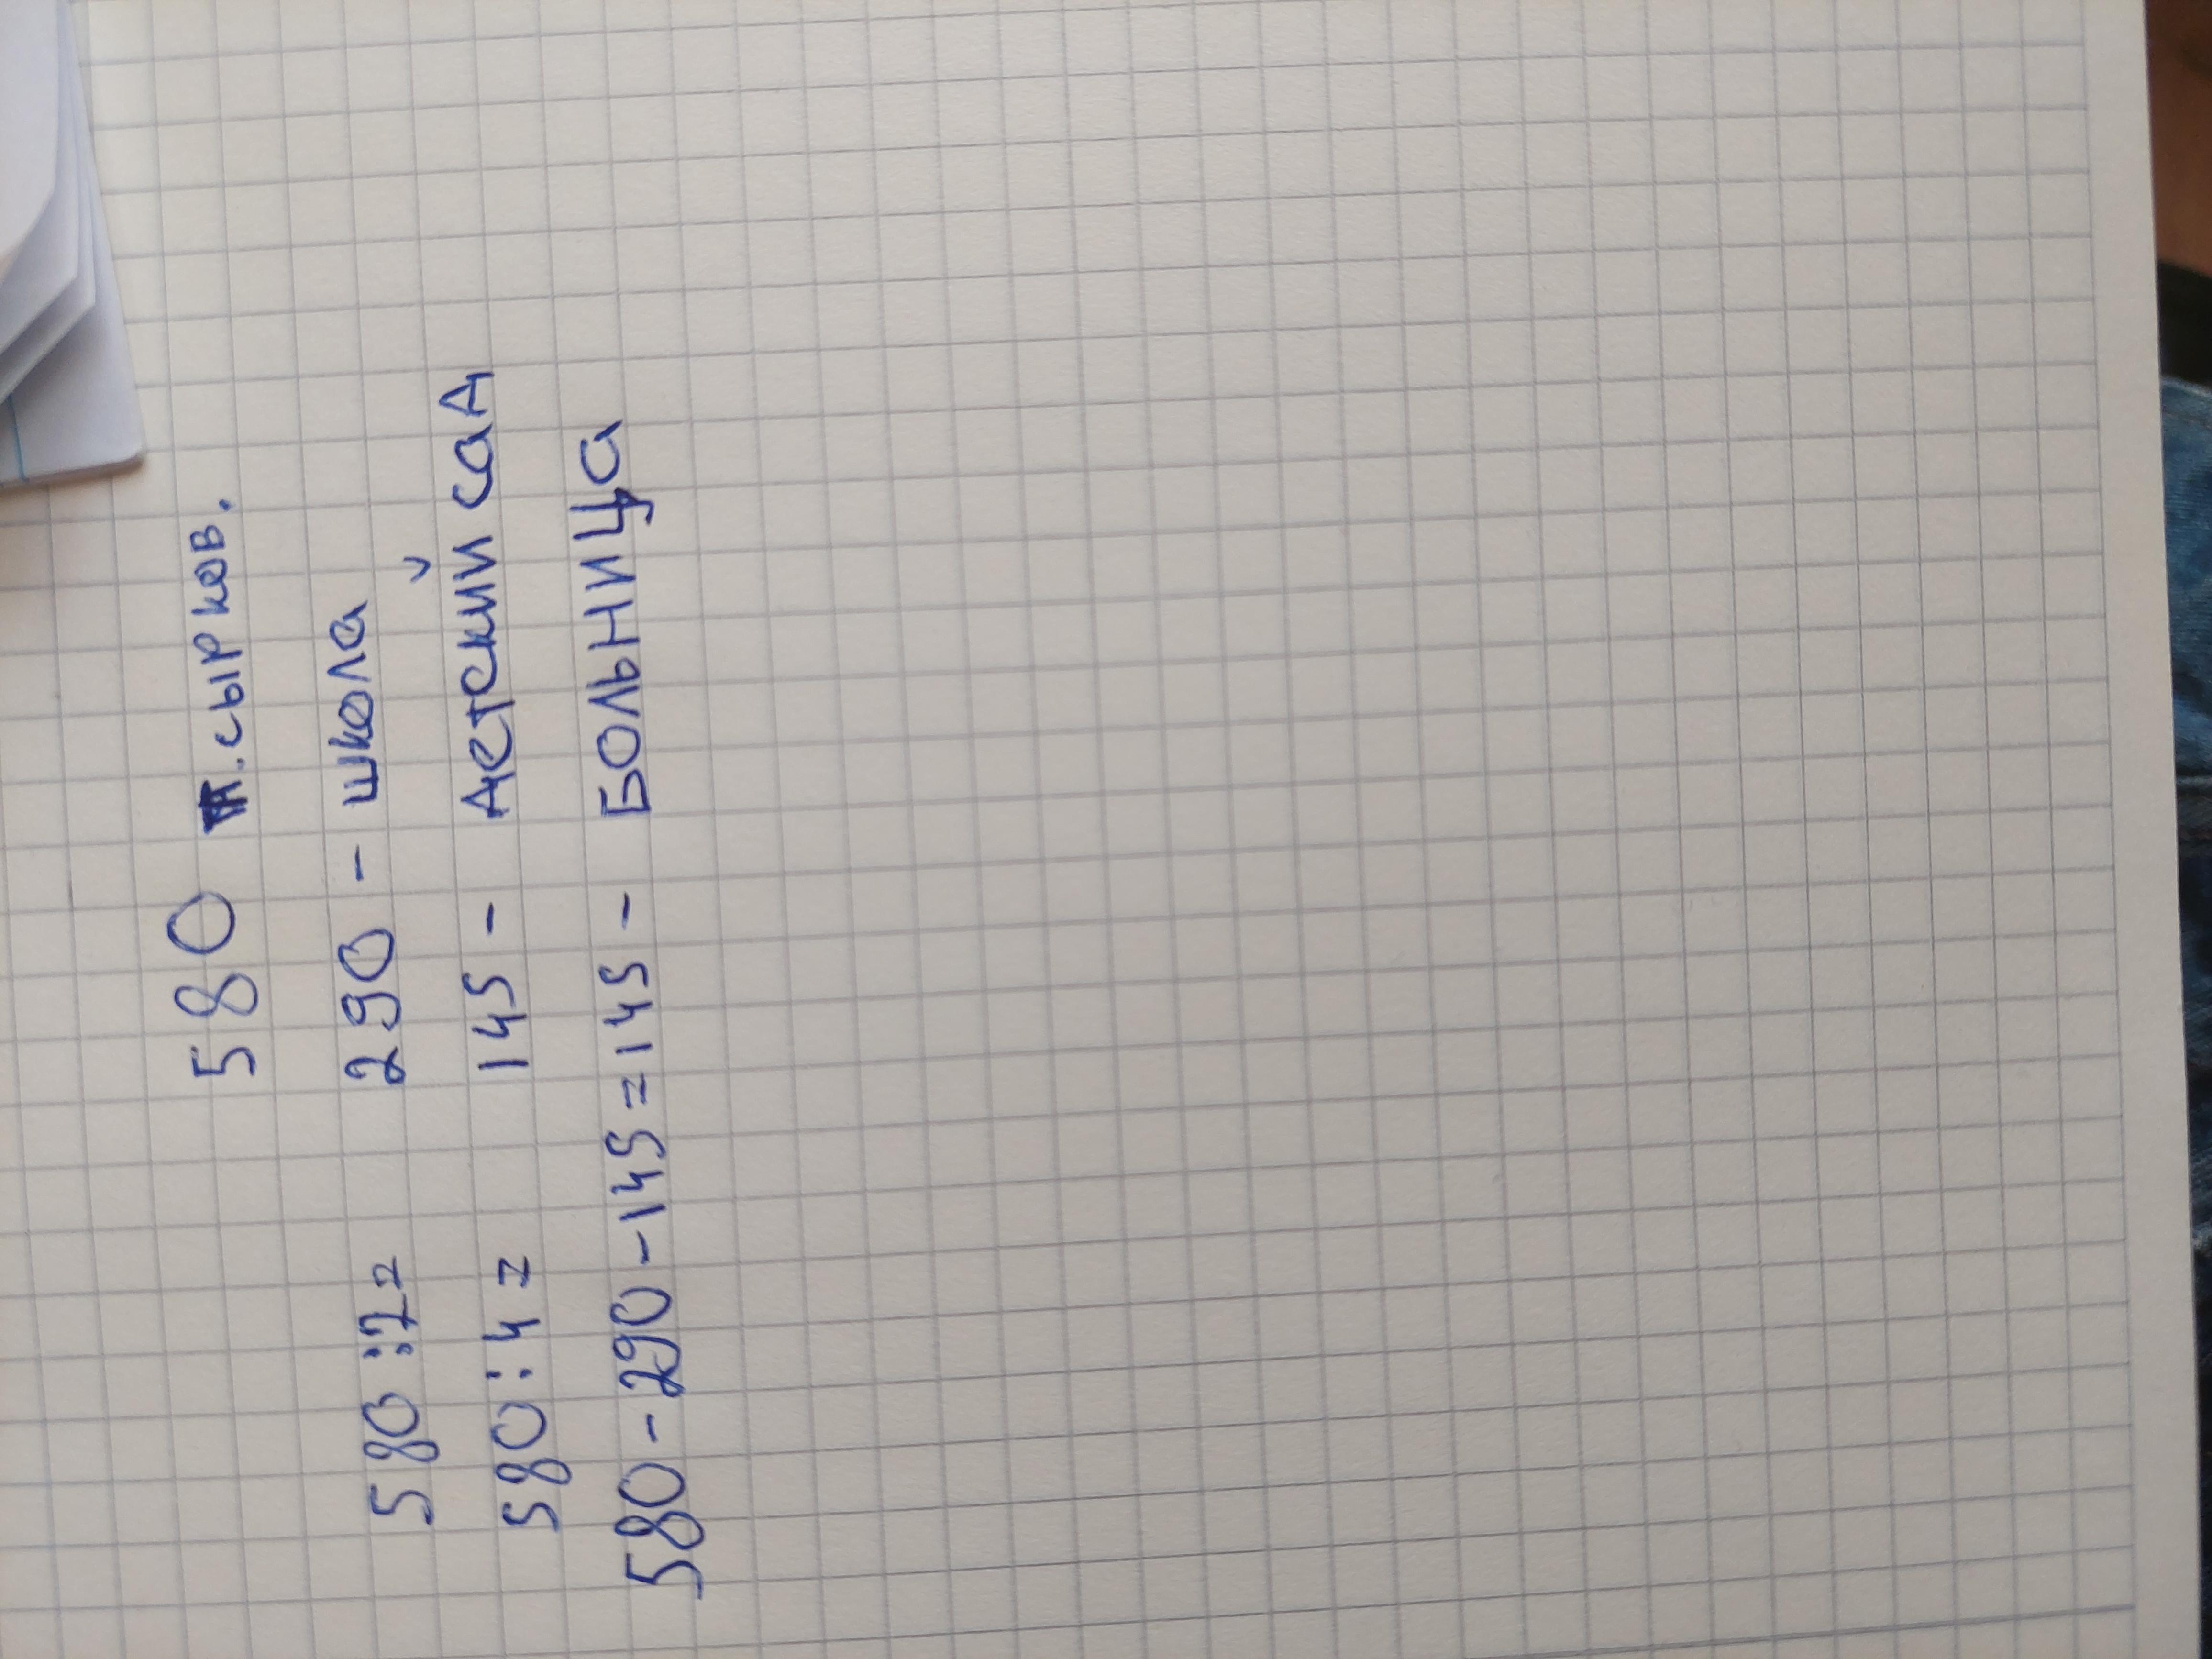 580 т.сырков.
580:2= 290 - школа
580:4= 145 - детский сад
580-290-145=145 - БОЛЬНИЦа